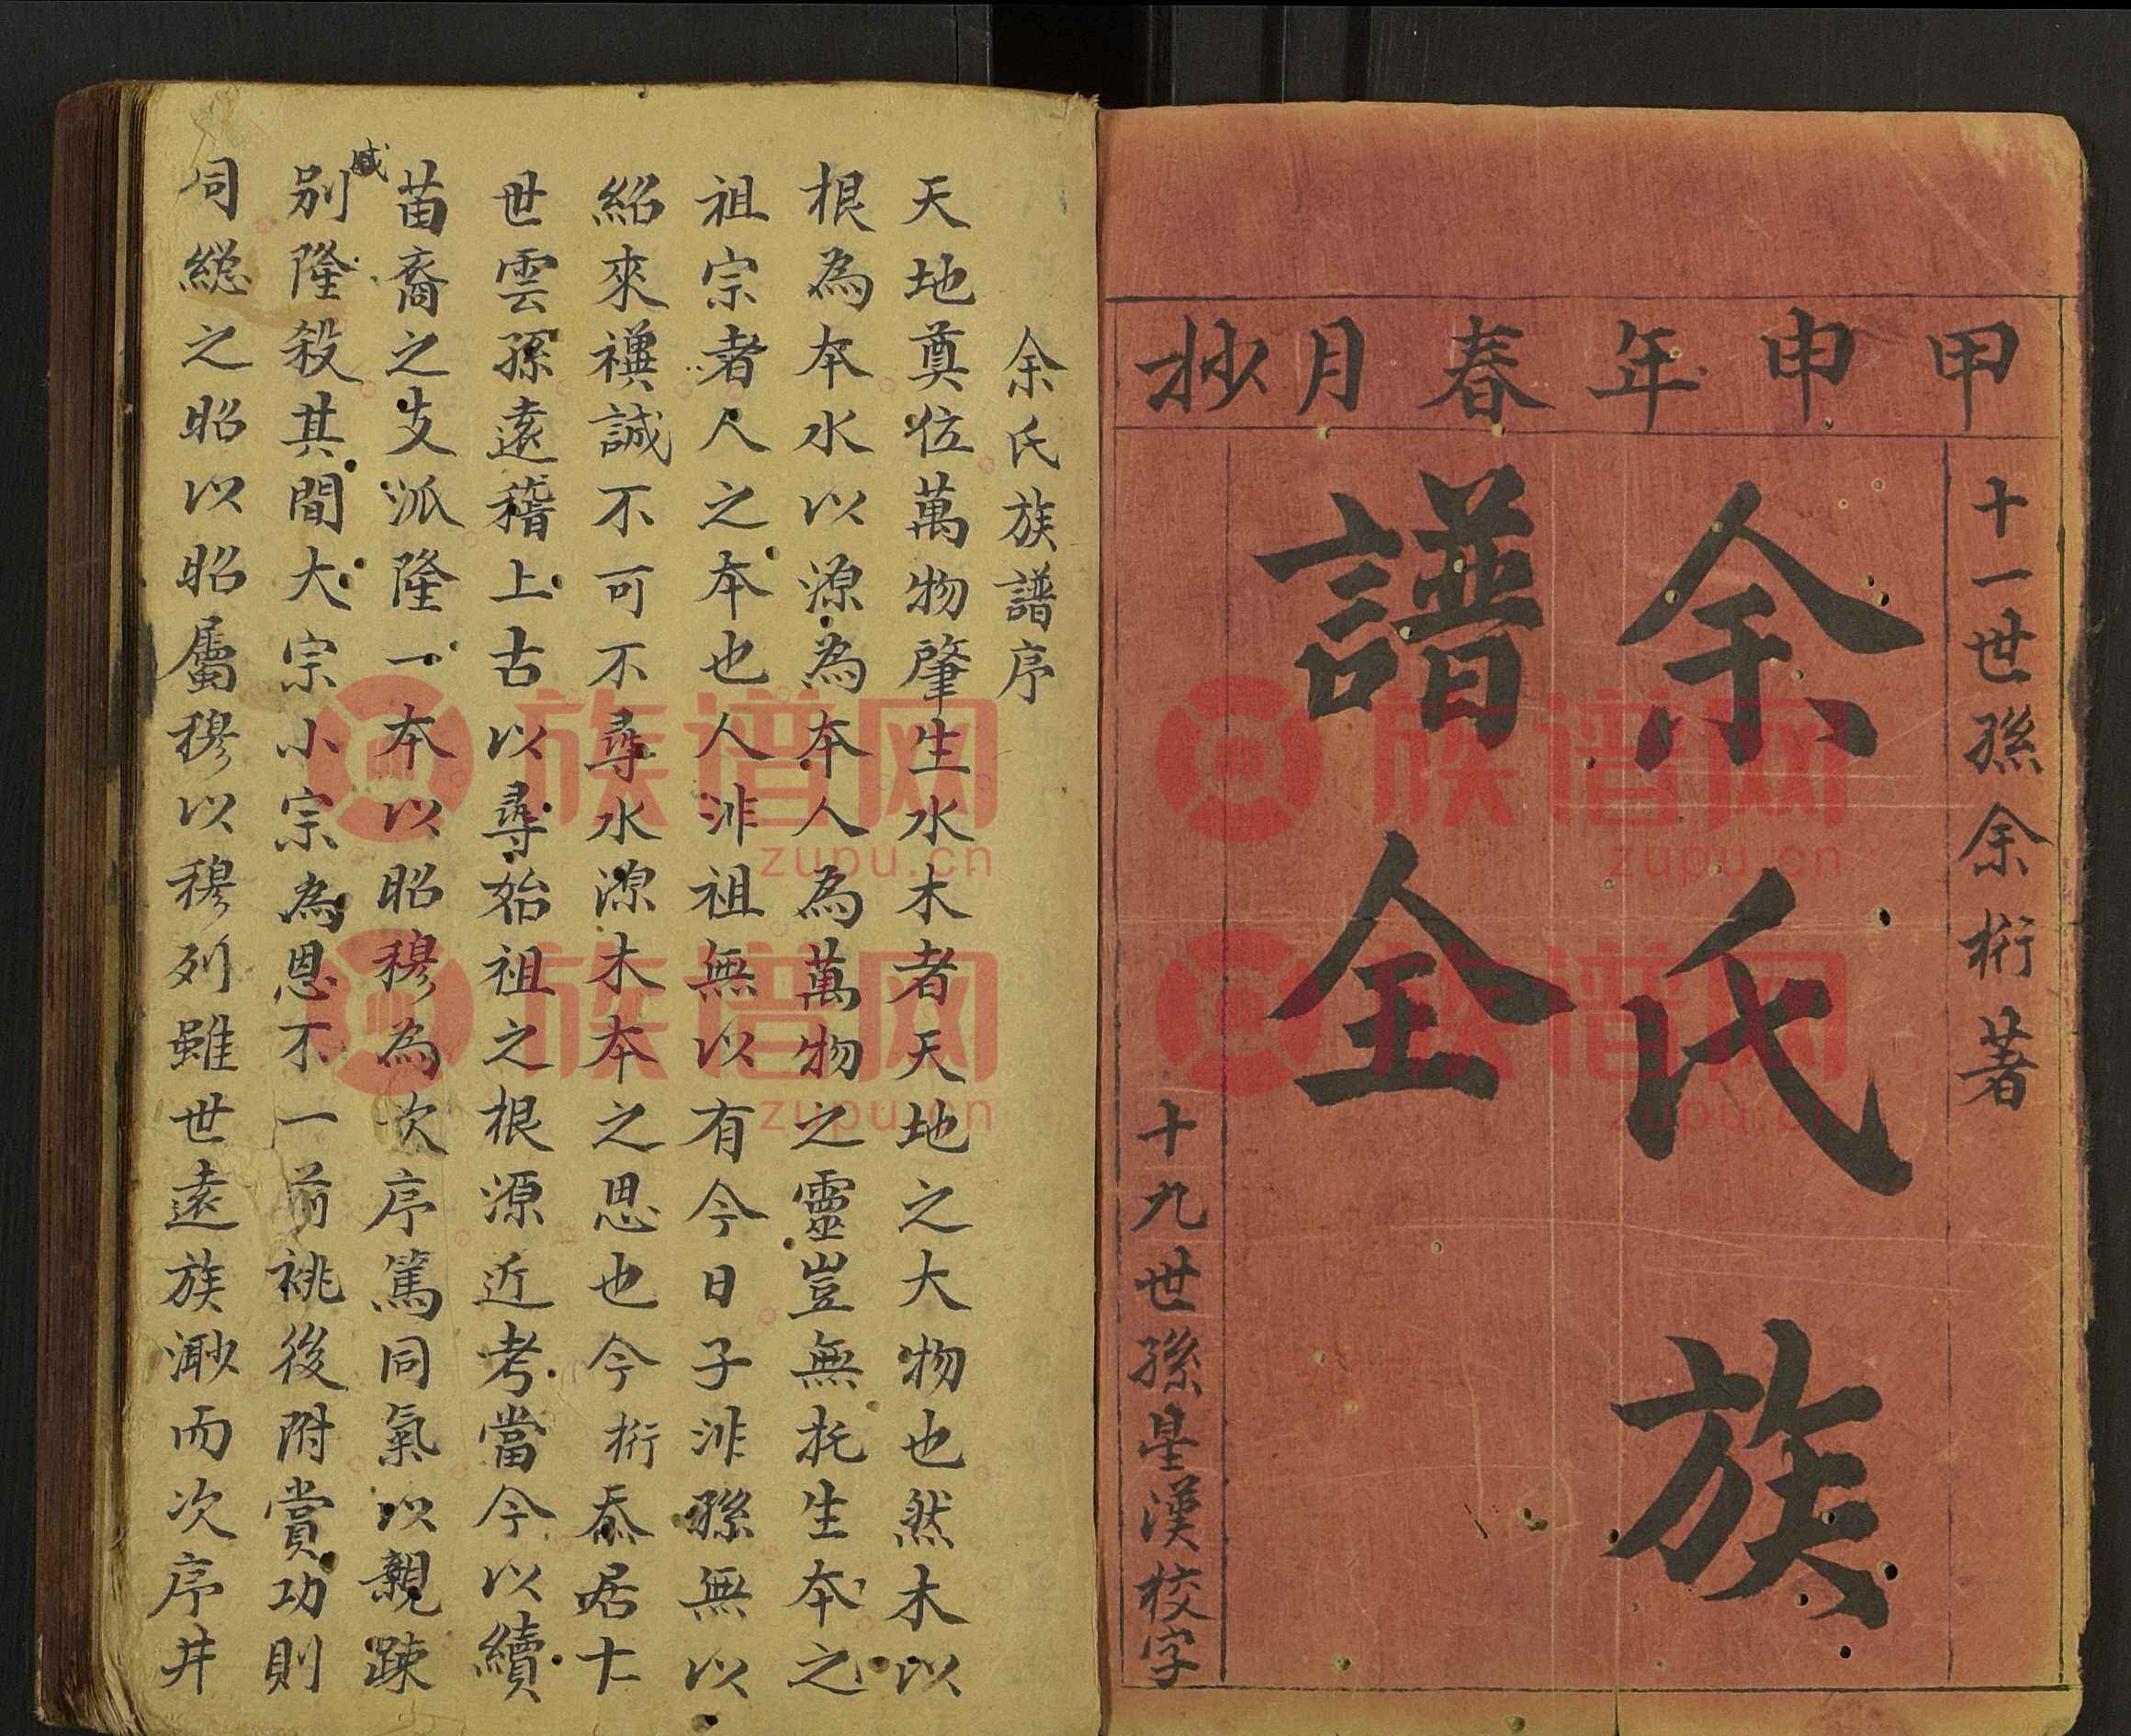 甲申年春月抄
十一世孫余桁著
余氏族
譜全
十九世孫星漢校字
余氏族譜序
天地奠位萬物肇生水木者天地之大物也然木以
根為本水以源為本人為萬物之靈豈無托生本之
祖宗者人之本也人非祖無以有今日子非孫無以
紹來禩誠不可不尋水源木本之思也今桁忝居十
世雲孫遠稽上古以尋始祖之根源近考當今以續
苗裔之支派隆一本以昭穆為次序篤同氣以親疎
別隆殺其間大宗小宗為恩不一前祧後附賞功則
同總之昭以昭屬穆以穆列雖世遠族渺而次序井
族谱网
zupu.cn
族谱网
zupu.cn
族谱网
zupu.cn
族谱网
zupu.cn